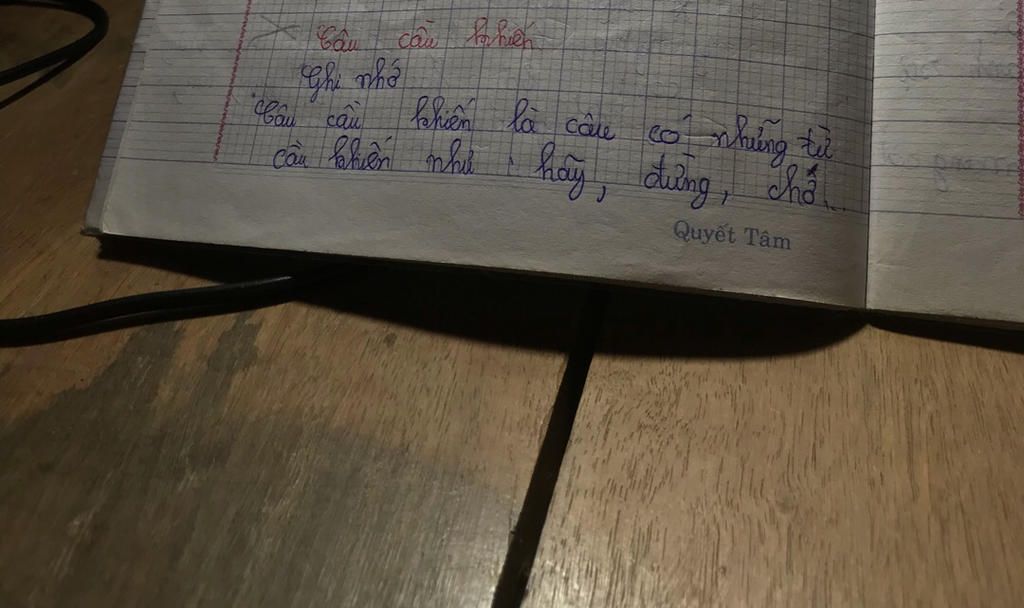 Câu cầu khiến
Ghi nhớ
Câu cầu khiến là câu có những từ
cầu khiến như : hãy, đừng, chớ...
Quyết Tâm